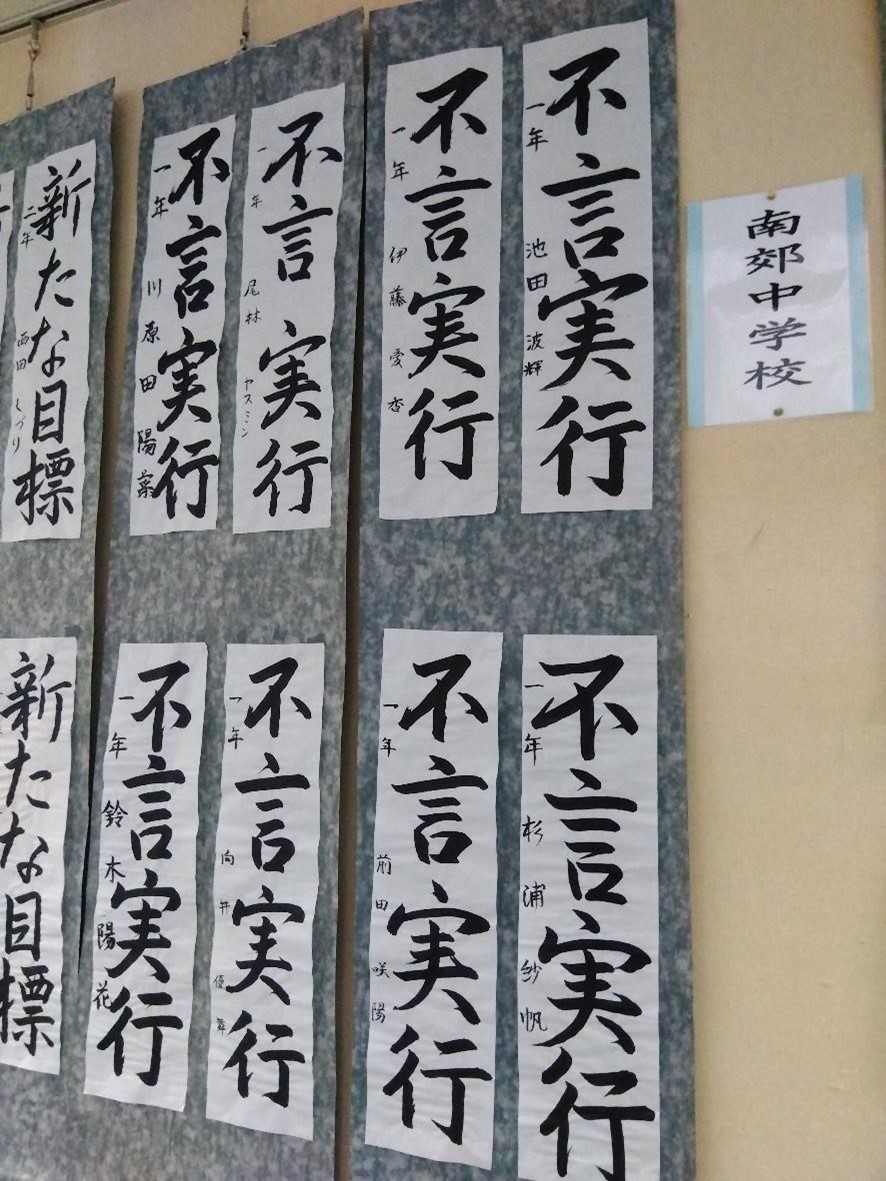 南郊中学校
不言実行
一年 池田波輝
不言実行
一年 伊藤愛杏
不言実行
一年 尾林ヤスミン
不言実行
一年 川原田陽菜
新たな目標
二年 西田しづり
不言実行
一年 杉浦紗帆
不言実行
一年 前田咲陽
不言実行
一年 向井優
不言実行
一年 鈴木陽花
新たな目標